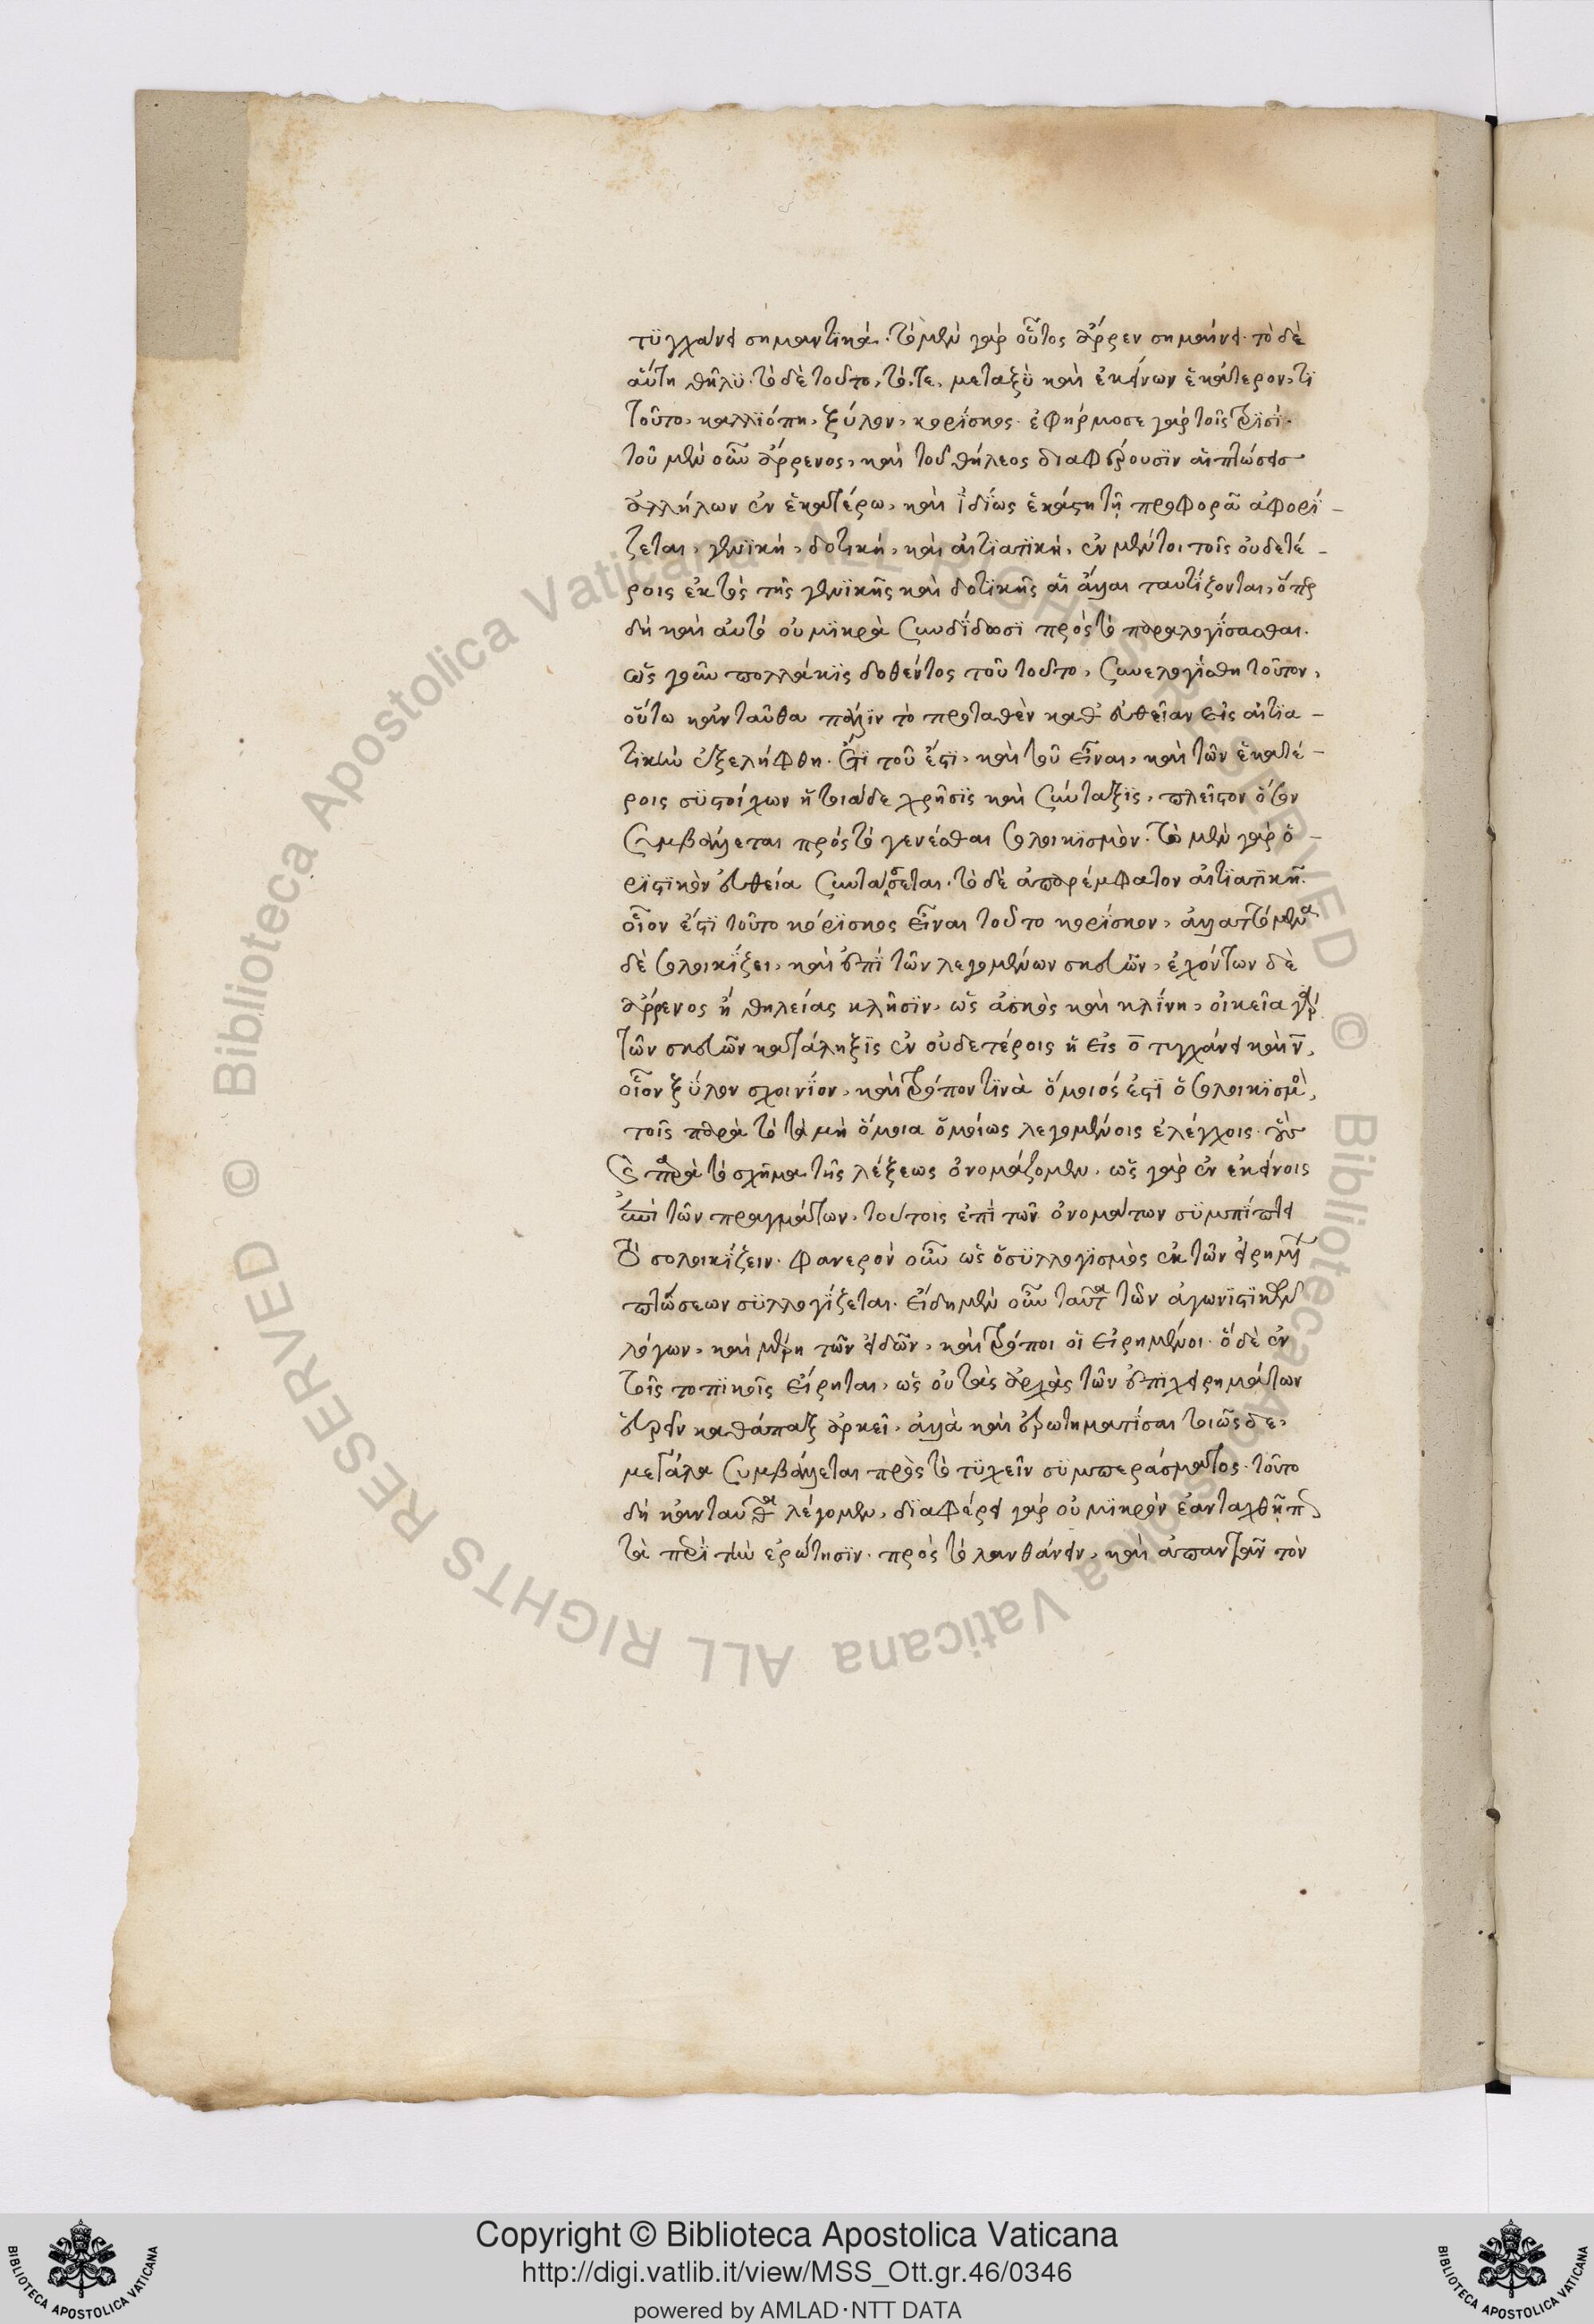 τϋγχάνει σημαντϊκά. τὸ μὲν γὰρ οὗτος ἄρρεν σημαίνει. τὸ δὲ
αὕτη θῆλϋ. τὸ δὲ τοῦτο, τό, τε, μεταξὺ καὶ ἐκείνων ἑκάτερον, τϊ
τοῦτο, καλλϊόπη, ξύλον, κορΐσκος. ἐφήρμοσε γὰρ τοῖς τρϊσί.
τοῦ μὲν οὖν ἄρρενος, καὶ τοῦ θήλεος διαφέρουσϊν αἱ πτώσεις
ἀλλήλων ἐν ἑκατέρω, καὶ ἰδΐως ἑκάστη τῆ προφορᾶ ἀφορϊ -
ζεται, γενϊκὴ, δοτικὴ, καὶ αἰτϊατϊκή. ἐν μέντοι τοῖς οὐδετέ -
ροις ἐκτὸς τῆς γενϊκῆς καὶ δοτϊκῆς αἱ ἄλλαι ταυτΐζονται, ὅπερ
δὴ καὶ αὐτὸ οὐ μϊκρὰ συνδΐδωσϊ πρὸς τὸ παραλογΐσασθαι.
ὡς γοῦν πολλάκϊς δοθέντος τοῦ τοῦτο, συνελογΐσθη τοῦτον,
οὕτω κἀνταῦθα πάλϊν τὸ προταθὲν κατ' εὐθεῖαν εἰς αἰτϊα -
τϊκὴν ἐξελήφθη. ἔτϊ τοῦ ἔστϊ, καὶ τοῦ εἶναι, καὶ τῶν ἑκατέ -
ροις συστοίχων ἡ τοιάδε χρῆσϊς καὶ σύνταξϊς, πλεῖστον ὅσον
συμβάλλεται πρὸς τὸ γενέσθαι σολοικϊσμόν. τὸ μὲν γὰρ ὁ -
ρϊστϊκὸν εὐθεία συντάσσεται. τὸ δὲ ἀπαρέμφατον αἰτϊατϊκῆ.
οἷον ἔστϊ τοῦτο κόρϊσκος εἶναι τοῦτο κορΐσκον,
δὲ σολοικΐζει, καὶ ἐπὶ τῶν λεγομένων σκευῶν, ἐχόντων δὲ
ἄρρενος ἢ θηλείας κλῆσϊν, ὡς ἀσκὸς καὶ κλΐνη, οἰκεία γὰρ
τῶν σκευῶν κατάληξϊς ἐν οὐδετέροις ἡ εἰς ο τυγχάνει καὶ ν,
οἷον ξύλον σχοινΐον, καὶ τρόπον τϊνὰ ὅμοιός ἐστϊ ὁ σολοικϊσμὸς,
τοῖς παρὰ τὸ τὰ μὴ ὅμοια ὁμοίως λεγομένοις ἐλέγχοις. οὓς
παρὰ τὸ σχῆμα τῆς λέξεως ὀνομάζομεν. ὡς γὰρ ἐν ἐκείνοις
ἐπὶ τῶν πραγμάτων, τούτοις ἐπὶ τῶν ὀνομάτων σϋμπίπτει
τὸ σολοικΐζειν. φανερὸν οὖν ὡς ὁ σϋλλογϊσμὸς ἐκ τῶν εἰρημένων
πτώσεων σϋλλογΐζεται. εἴδη μὲν οὖν ταῦτα τῶν ἀγωνϊστϊκῶν
λόγων, καὶ μέρη τῶν εἰδῶν, καὶ τρόποι οἱ εἰρημένοι. ὃ δὲ ἐν
τοῖς τοπϊκοῖς εἴρηται, ὡς οὐ τὰς ἀρχὰς τῶν ἐπϊχειρημάτων
εὑρεῖν καθάπαξ ἀρκεῖ, ἀλλὰ καὶ ἐρωτηματΐσαι τοιῶσδε,
μεγάλα συμβάλλεται πρὸς τὸ τϋχεῖν σϋμπεράσματος. τοῦτο
δὴ κἀνταῦθα λέγομεν, δϊαφέρει γὰρ οὐ μϊκρὸν ἐὰν ταχθῆ π
τὰ περϊ τὴν ἐρώτησϊν. πρὸς τὸ λανθάνειν, καὶ ἀπαντᾶν τὸν
© Biblioteca Apostolica Vaticana ALL RIGHTS RESERVED © Biblioteca Apostolica Vaticana ALL RIGHTS RESERVED
Copyright © Biblioteca Apostolica Vaticana
http://digi.vatlib.it/view/MSS_Ott.gr.46/0346
powered by AMLAD·NTT DATA
BIBLIOTECA APOSTOLICA VATICANA
BIBLIOTECA APOSTOLICA VATICANA